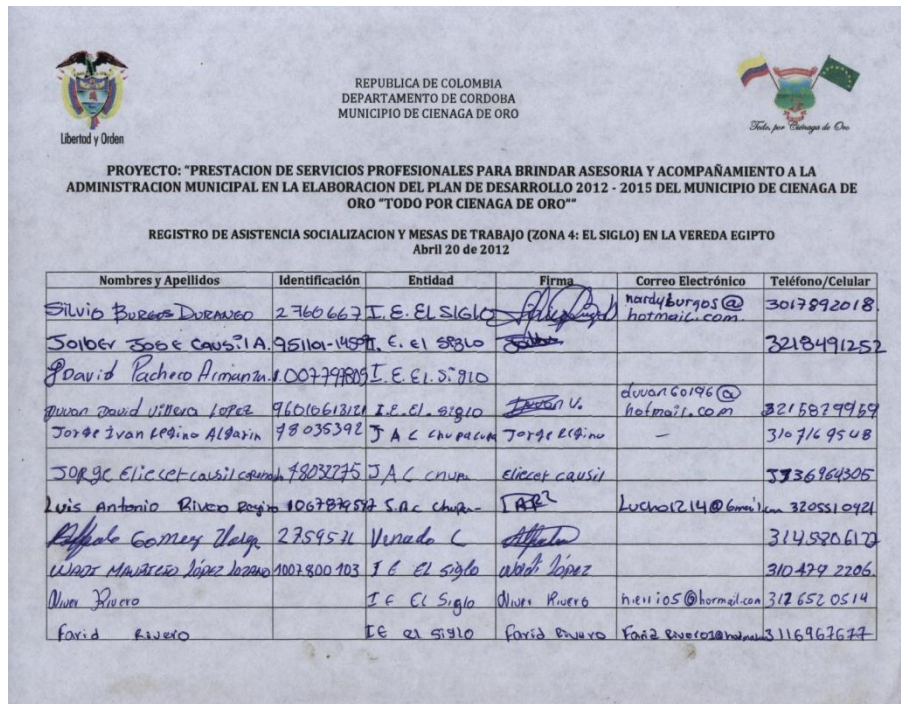 REPUBLICA DE COLOMBIA
DEPARTAMENTO DE CORDOBA
MUNICIPIO DE CIENAGA DE ORO
Libertad y Orden
Todo, por Cienaga de Oro
PROYECTO: "PRESTACION DE SERVICIOS PROFESIONALES PARA BRINDAR ASESORIA Y ACOMPAÑAMIENTO A LA
ADMINISTRACION MUNICIPAL EN LA ELABORACION DEL PLAN DE DESARROLLO 2012 - 2015 DEL MUNICIPIO DE CIENAGA DE
ORO "TODO POR CIENAGA DE ORO""
REGISTRO DE ASISTENCIA SOCIALIZACION Y MESAS DE TRABAJO (ZONA 4: EL SIGLO) EN LA VEREDA EGIPTO
Abril 20 de 2012
Nombres y Apellidos Identificación Entidad Firma Correo Electrónico Teléfono/Celular
Silvio Burgos Durango 2760667 I.E. El SIGLO nardyburgos@hotmail.com. 3017892018.
Joiber Jose Causil A. I.E. el siglo 3218491252
David Pacheco I.E. El. Siglo
Duvan David Villera Lopez I.E. El. siglo Duvan V. duvan60196@hotmail.com 3215879959
Jorge Ivan 78035392 J A C Jorge - 3107169548
JORGE Eliecer causil 78032275 J A C Eliecer causil
Luis Antonio Rivero 3205510421
Gomez 2759571 Venado C
WADI MAURICIO López LOZANO 1007800103 I E El siglo Wadi López 310479 2206.
Oliver Rivero I E El Siglo Oliver Rivero 3126520514
Farid Rivero IE el siglo Farid Rivero 3116967677